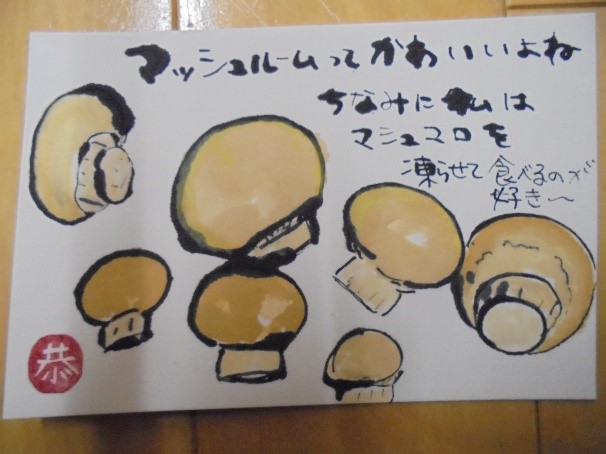 マッシュルームってかわいいよね
ちなみに私は
マシュマロを
凍らせて食べるのが
好き〜
恭